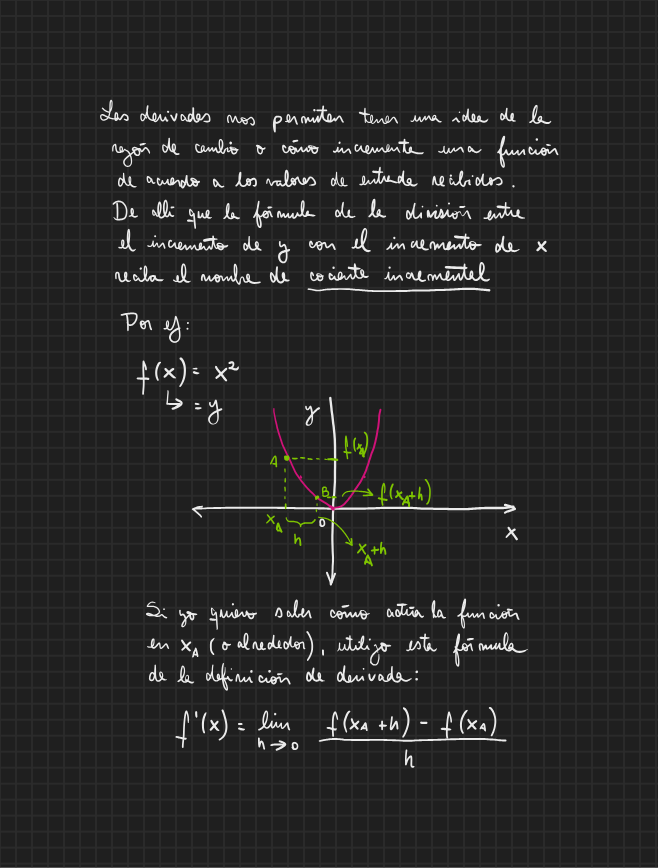 Las derivadas nos permiten tener una idea de la
razón de cambio o cómo incrementa una función
de acuerdo a los valores de entrada recibidos.
De allí que la fórmula de la división entre
el incremento de y con el incremento de x
reciba el nombre de cociente incremental
Por ej:
f(x) = x²
↳ = y
y
f(x_A)
A
B
→ f(x_A+h)
x_A
0
h
x_A+h
x
Si yo quiero saber cómo actúa la función
en x_A (o alrededor), utilizo esta fórmula
de la definición de derivada:
f'(x) = lim h→0 f(x_A+h) - f(x_A) / h